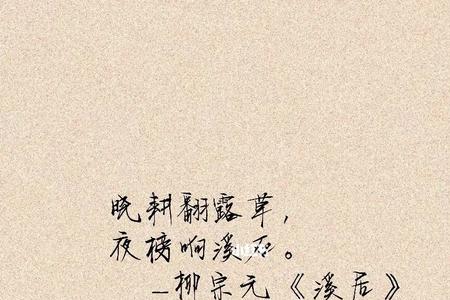 晓耕翻露草，
夜榜响溪石。
—柳宗元《溪居》